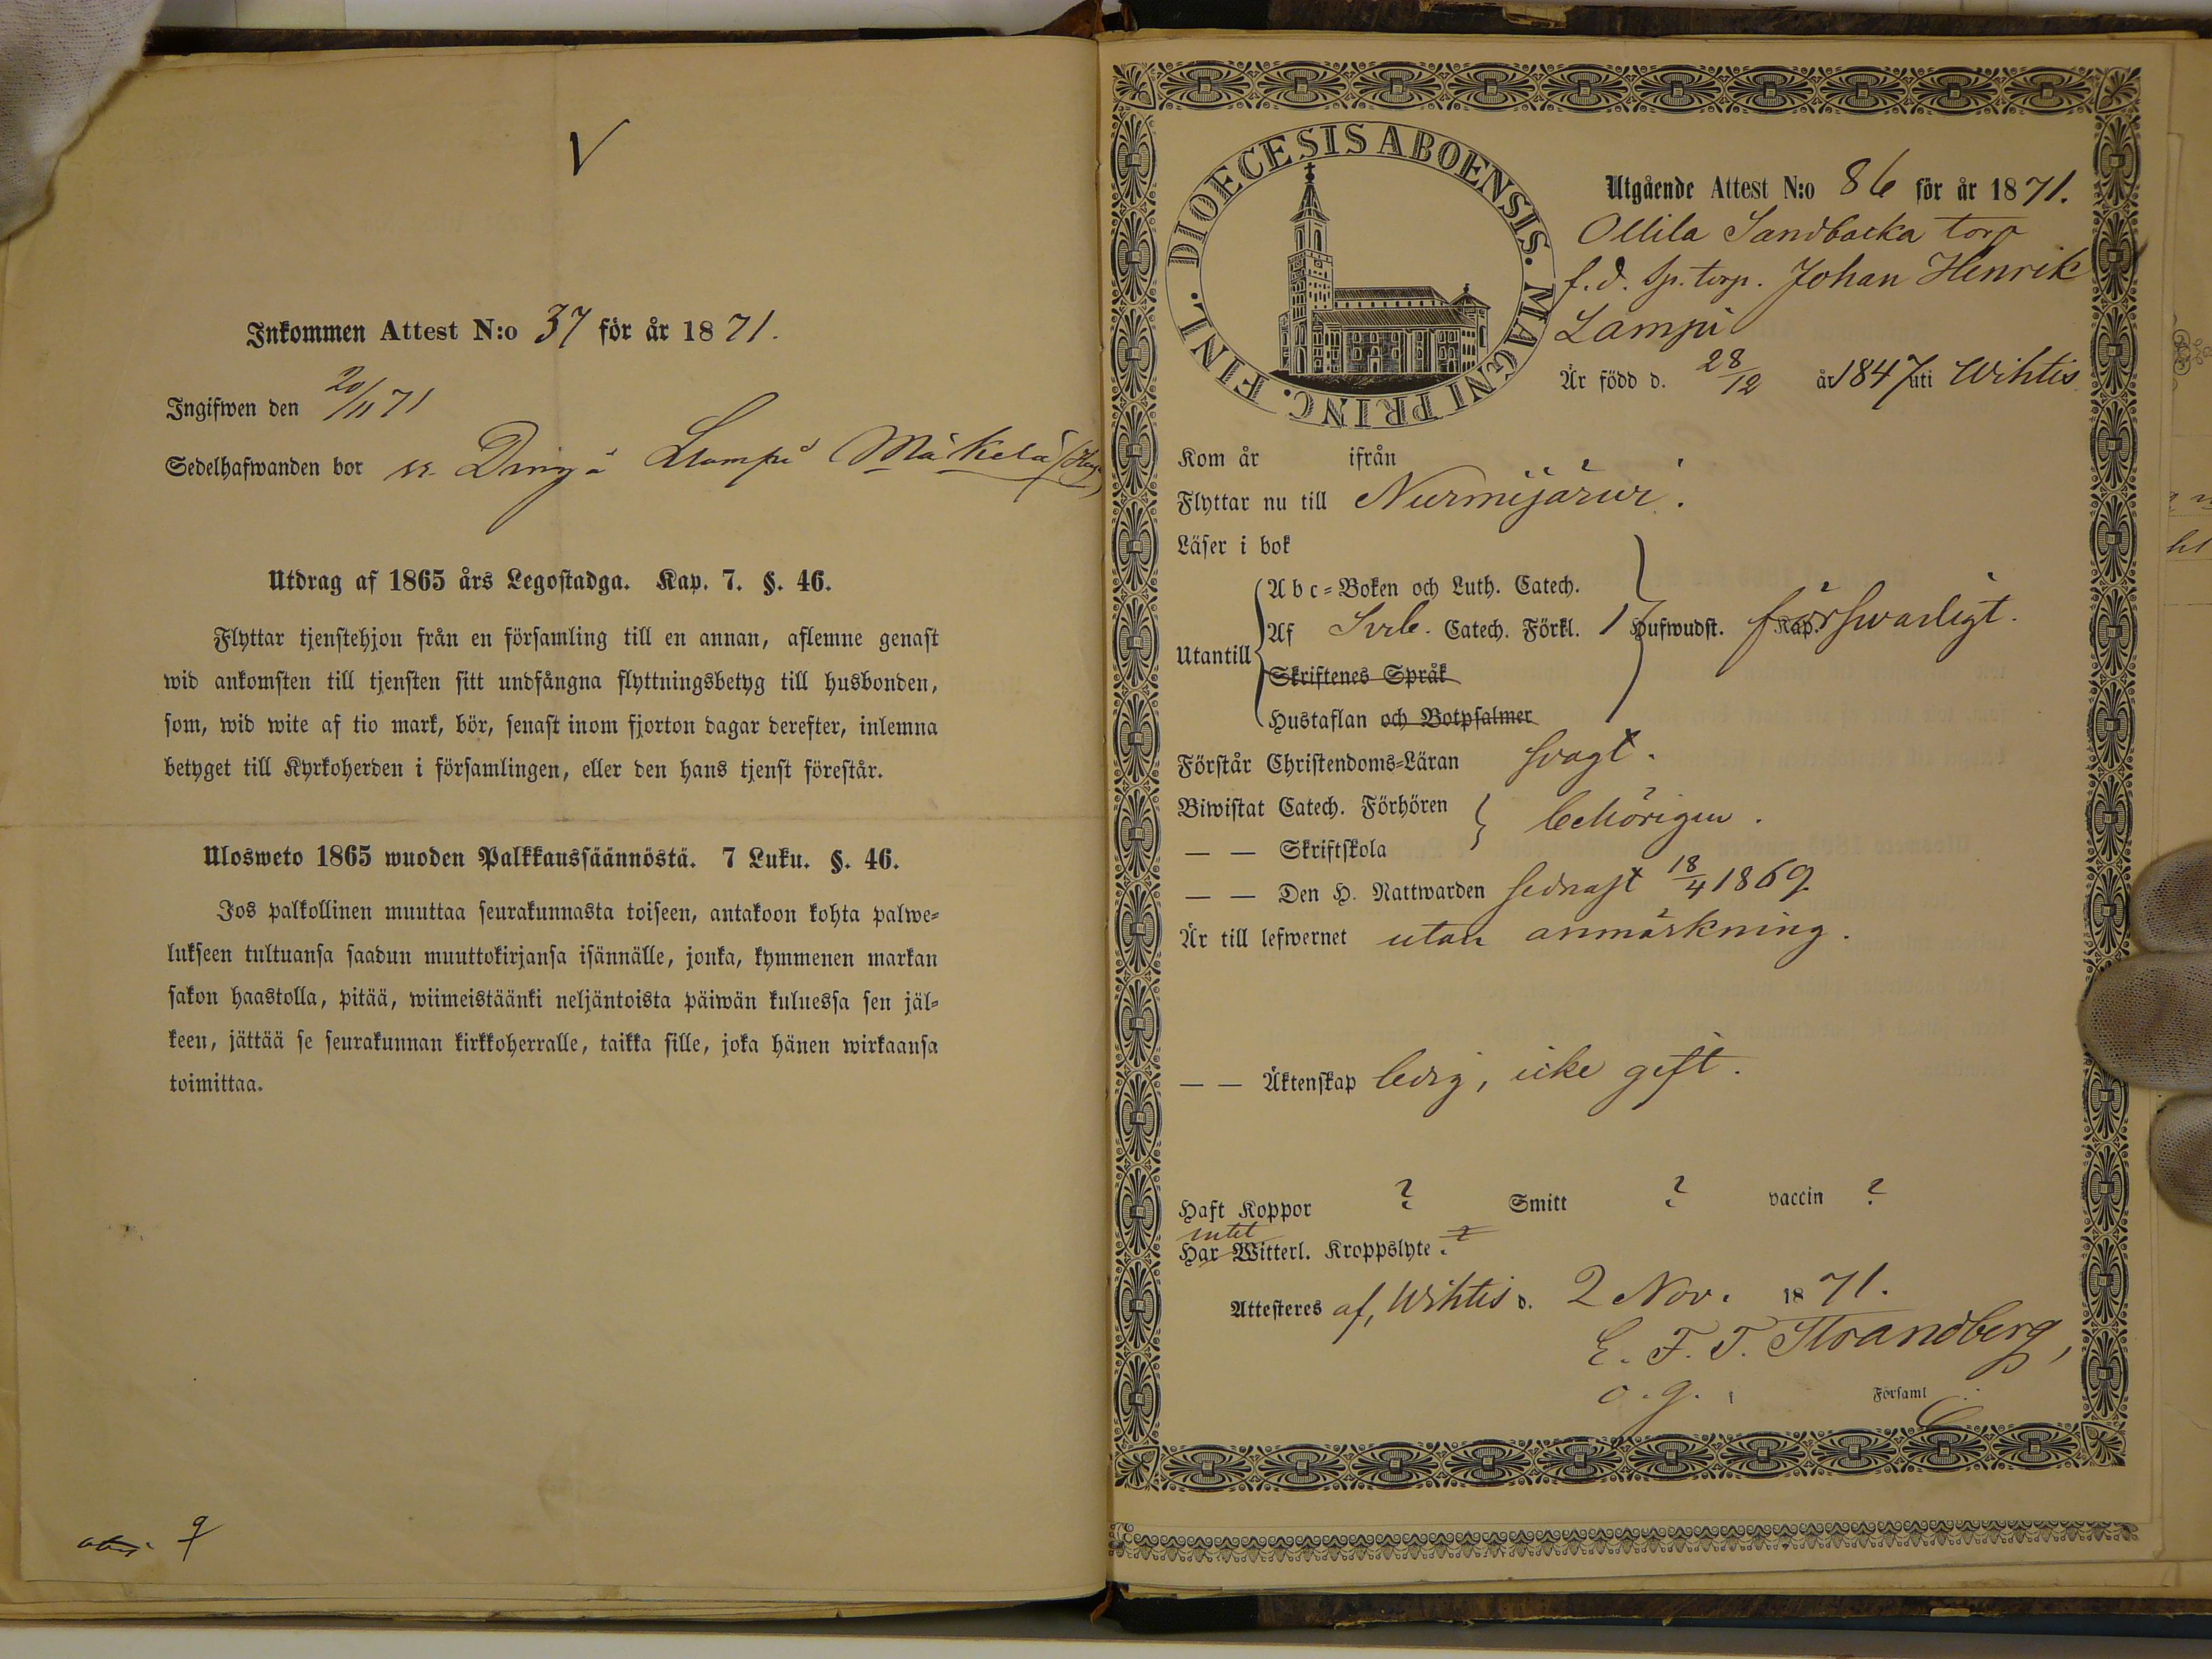 V
Inkommen Attest N:o 37 för år 1871.
Ingifwen den 20/11 71
Sedelhafwanden bor Dräng å Mäkelä
Utdrag af 1865 års Legostadga. Kap. 7. §. 46.
Flyttar tjenstehjon från en församling till en annan, aflemne genast
wid ankomsten till tjensten sitt undfångna flyttningsbetyg till husbonden,
som, wid wite af tio mark, bör, senast inom fjorton dagar derefter, inlemna
betyget till Kyrkoherden i församlingen, eller den hans tjenst förestår.
Ulosweto 1865 wuoden Palkkaussäännöstä. 7 Luku. §. 46.
Jos palkollinen muuttaa seurakunnasta toiseen, antakoon kohta palwe-
lukseen tultuansa saadun muuttokirjansa isännälle, jonka, kymmenen markan
sakon haastolla, pitää, wiimeistäänki neljäntoista päiwän kuluessa sen jäl-
keen, jättää se seurakunnan kirkkoherralle, taikka sille, joka hänen wirkaansa
toimittaa.
DIOECESIS ABOENSIS. MAGNI PRINC. FINL.
Utgående Attest N:o 86 för år 1871.
Ollila Sandbacka torp
f.d. sp. torp. Johan Henrik
Lampi
Är född d. 28/12 år 1847 uti Wihtis
Kom år ifrån
Flyttar nu till Nurmijärwi.
Läser i bok
Utantill
Abc-Boken och Luth. Catech.
Af Sveb. Catech. Förkl. 1 Hufwudst. Kap. försvarligt.
Skriftenes Språk
Hustaflan och Botpsalmer
Förstår Christendoms-Läran svagt.
Biwistat Catech. Förhören behörigen.
— — Skriftskola
— — Den H. Nattwarden sednast 18/4 1869
Är till lefwernet utan anmärkning.
— — Äktenskap ledig, icke gift.
Haft Koppor ? Smitt ? vaccin ?
intet
Har Witterl. Kroppslyte. ?
Attesteres af, Wihtis d. 2 Nov. 1871.
E. F. T. Strandberg,
o. g. Församl